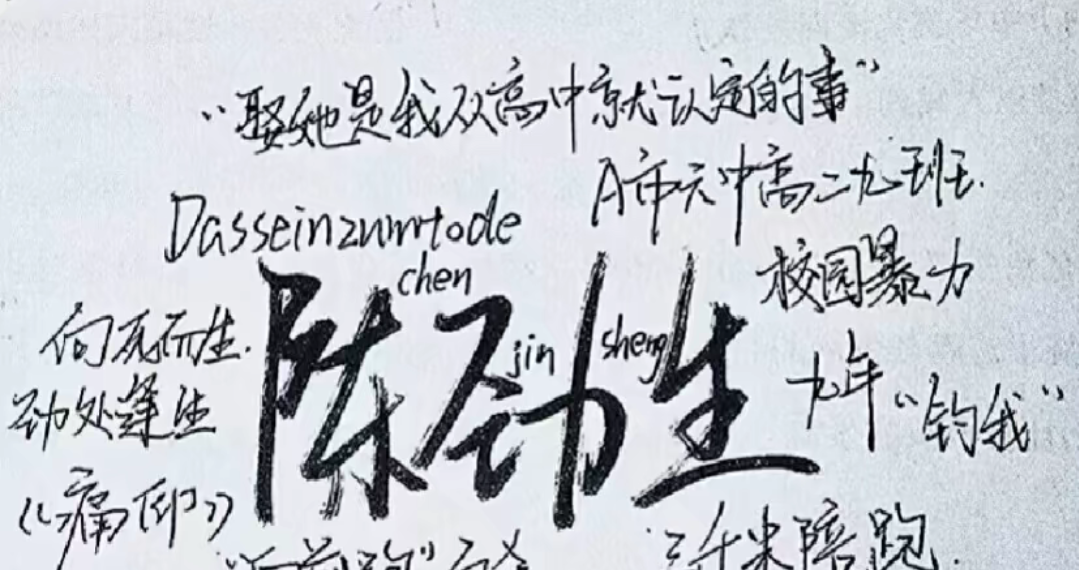 “娶她是我从高中就认定的事”
A市六中高二九班.
Dasseinzumtode
校园暴力
chen
陈劲生
jin sheng
向死而生.
劲处逢生
九年“钓我”
《痛仰》
三千米陪跑.